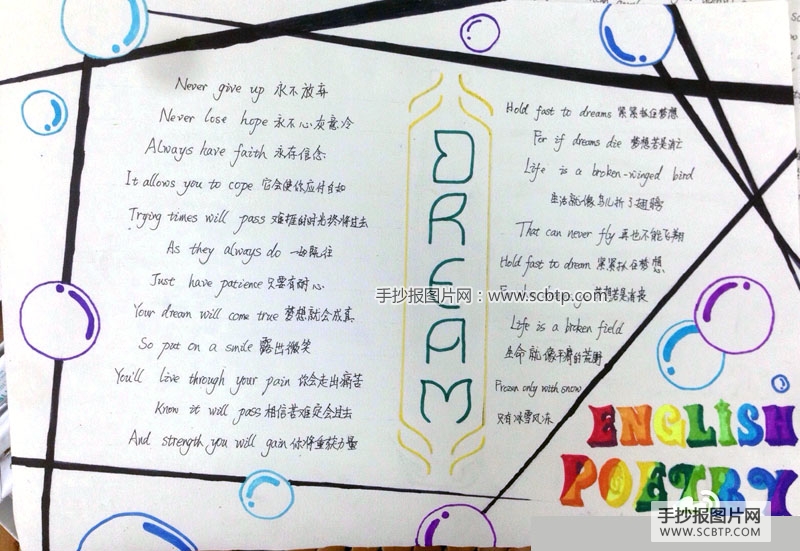 Never give up 永不放弃
Never lose hope 永不心灰意冷
Always have faith 永存信念
It allows you to cope 它会使你应付自如
Trying times will pass 难捱的时光终将过去
As they always do 一如既往
Just have patience 只要有耐心
Your dream will come true 梦想就会成真
So put on a smile 露出微笑
You'll live through your pain 你会走出痛苦
Know it will pass 相信苦难定会过去
And strength you will gain 你将重获力量
DREAM
Hold fast to dreams 紧紧抓住梦想
For if dreams die 梦想若是消亡
Life is a broken-winged bird
生活就像鸟儿折了翅膀
That can never fly 再也不能飞翔
Hold fast to dream 紧紧抓住梦想
For 梦想若是消丧
Life is a broken field
生命就像 的荒野
Frozen only with snow
只有冰雪风冻
ENGLISH
POETRY
手抄报图片网：www.scbtp.com
手抄报图片网
WWW.SCBTP.COM